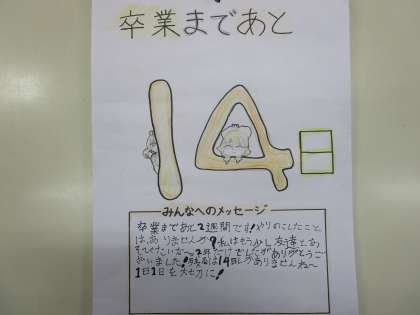 卒業まであと
14日
みんなへのメッセージ
卒業まであと2週間です！やりのこしたこと
はありませんか？私はもう少し友達と
たいな〜2年だけでしたがありがとうご
ざいました！は14日しかありませんね〜
1日1日を大切に！